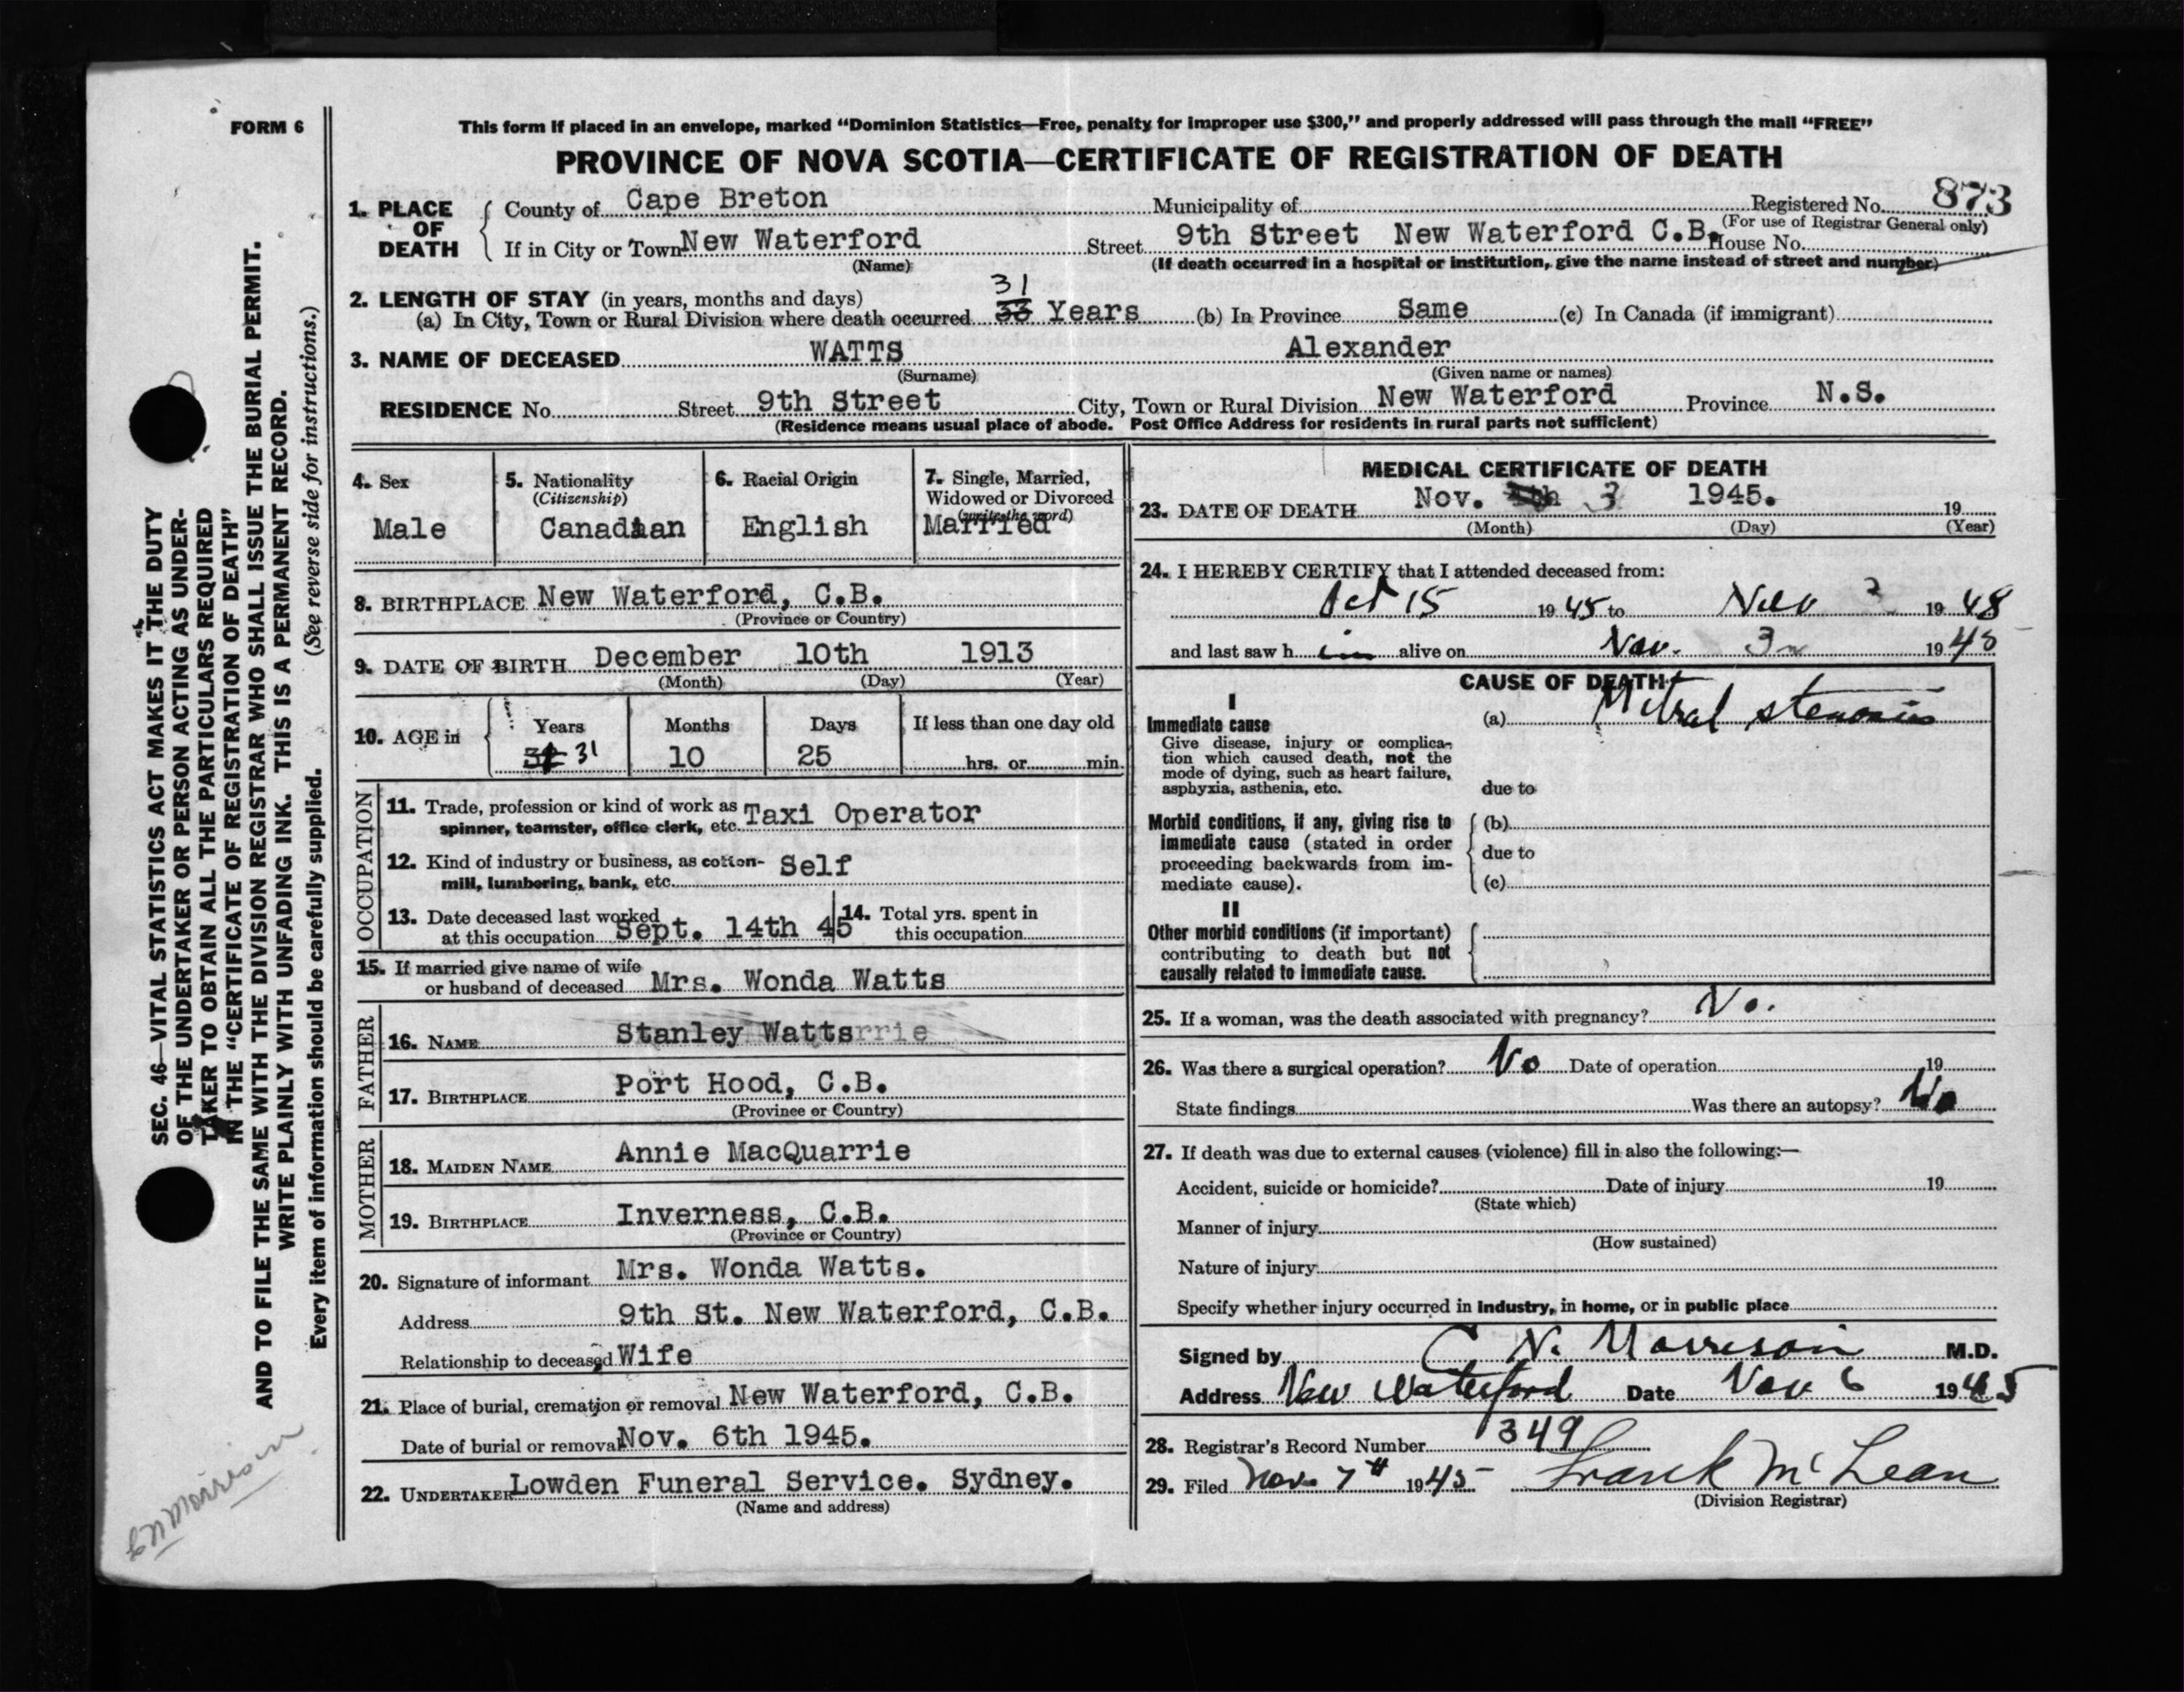 FORM 6
This form if placed in an envelope, marked “Dominion Statistics—Free, penalty for improper use $300,” and properly addressed will pass through the mail “FREE”
PROVINCE OF NOVA SCOTIA—CERTIFICATE OF REGISTRATION OF DEATH
1. PLACE OF DEATH County of Cape Breton Municipality of Registered No. 873
(For use of Registrar General only)
If in City or Town New Waterford Street 9th Street New Waterford C.B. House No.
(Name) (If death occurred in a hospital or institution, give the name instead of street and number)
31
2. LENGTH OF STAY (in years, months and days)
(a) In City, Town or Rural Division where death occurred 33 Years (b) In Province Same (c) In Canada (if immigrant)
3. NAME OF DECEASED WATTS Alexander
(Surname) (Given name or names)
RESIDENCE No. Street 9th Street City, Town or Rural Division New Waterford Province N.S.
(Residence means usual place of abode. Post Office Address for residents in rural parts not sufficient)
4. Sex
Male
5. Nationality
(Citizenship)
Canadian
6. Racial Origin
English
7. Single, Married,
Widowed or Divorced
(write the word)
Married
8. BIRTHPLACE New Waterford, C.B.
(Province or Country)
9. DATE OF BIRTH December 10th 1913
(Month) (Day) (Year)
10. AGE in Years Months Days If less than one day old
31 10 25 hrs. or min.
OCCUPATION
11. Trade, profession or kind of work as
spinner, teamster, office clerk, etc. Taxi Operator
12. Kind of industry or business, as cotton-
mill, lumbering, bank, etc. Self
13. Date deceased last worked
at this occupation Sept. 14th 45
14. Total yrs. spent in
this occupation
15. If married give name of wife
or husband of deceased Mrs. Wonda Watts
FATHER
16. NAME Stanley Wattsrrie
17. BIRTHPLACE Port Hood, C.B.
(Province or Country)
MOTHER
18. MAIDEN NAME Annie MacQuarrie
19. BIRTHPLACE Inverness, C.B.
(Province or Country)
20. Signature of informant Mrs. Wonda Watts.
Address 9th St. New Waterford, C.B.
Relationship to deceased Wife
21. Place of burial, cremation or removal New Waterford, C.B.
Date of burial or removal Nov. 6th 1945.
22. UNDERTAKER Lowden Funeral Service. Sydney.
(Name and address)
MEDICAL CERTIFICATE OF DEATH
23. DATE OF DEATH Nov. 4th 3 1945. 19
(Month) (Day) (Year)
24. I HEREBY CERTIFY that I attended deceased from:
Oct 15 1945 to Nov 3 1948
and last saw h im alive on Nov. 3 1945
CAUSE OF DEATH
I
Immediate cause
Give disease, injury or complica-
tion which caused death, not the
mode of dying, such as heart failure,
asphyxia, asthenia, etc.
(a) Mitral stenosis
due to
Morbid conditions, if any, giving rise to
immediate cause (stated in order
proceeding backwards from im-
mediate cause).
(b)
due to
(c)
II
Other morbid conditions (if important)
contributing to death but not
causally related to immediate cause.
25. If a woman, was the death associated with pregnancy? No.
26. Was there a surgical operation? No Date of operation 19
State findings Was there an autopsy? No
27. If death was due to external causes (violence) fill in also the following:—
Accident, suicide or homicide? Date of injury 19
(State which)
Manner of injury
(How sustained)
Nature of injury
Specify whether injury occurred in industry, in home, or in public place
Signed by C N. Morrison M.D.
Address New Waterford Date Nov 6 1945
28. Registrar's Record Number 349
29. Filed Nov. 7th 1945 Frank McLean
(Division Registrar)
SEC. 46—VITAL STATISTICS ACT MAKES IT THE DUTY
OF THE UNDERTAKER OR PERSON ACTING AS UNDER-
TAKER TO OBTAIN ALL THE PARTICULARS REQUIRED
IN THE “CERTIFICATE OF REGISTRATION OF DEATH”
AND TO FILE THE SAME WITH THE DIVISION REGISTRAR WHO SHALL ISSUE THE BURIAL PERMIT.
WRITE PLAINLY WITH UNFADING INK. THIS IS A PERMANENT RECORD.
Every item of information should be carefully supplied. (See reverse side for instructions.)
CN Morrison